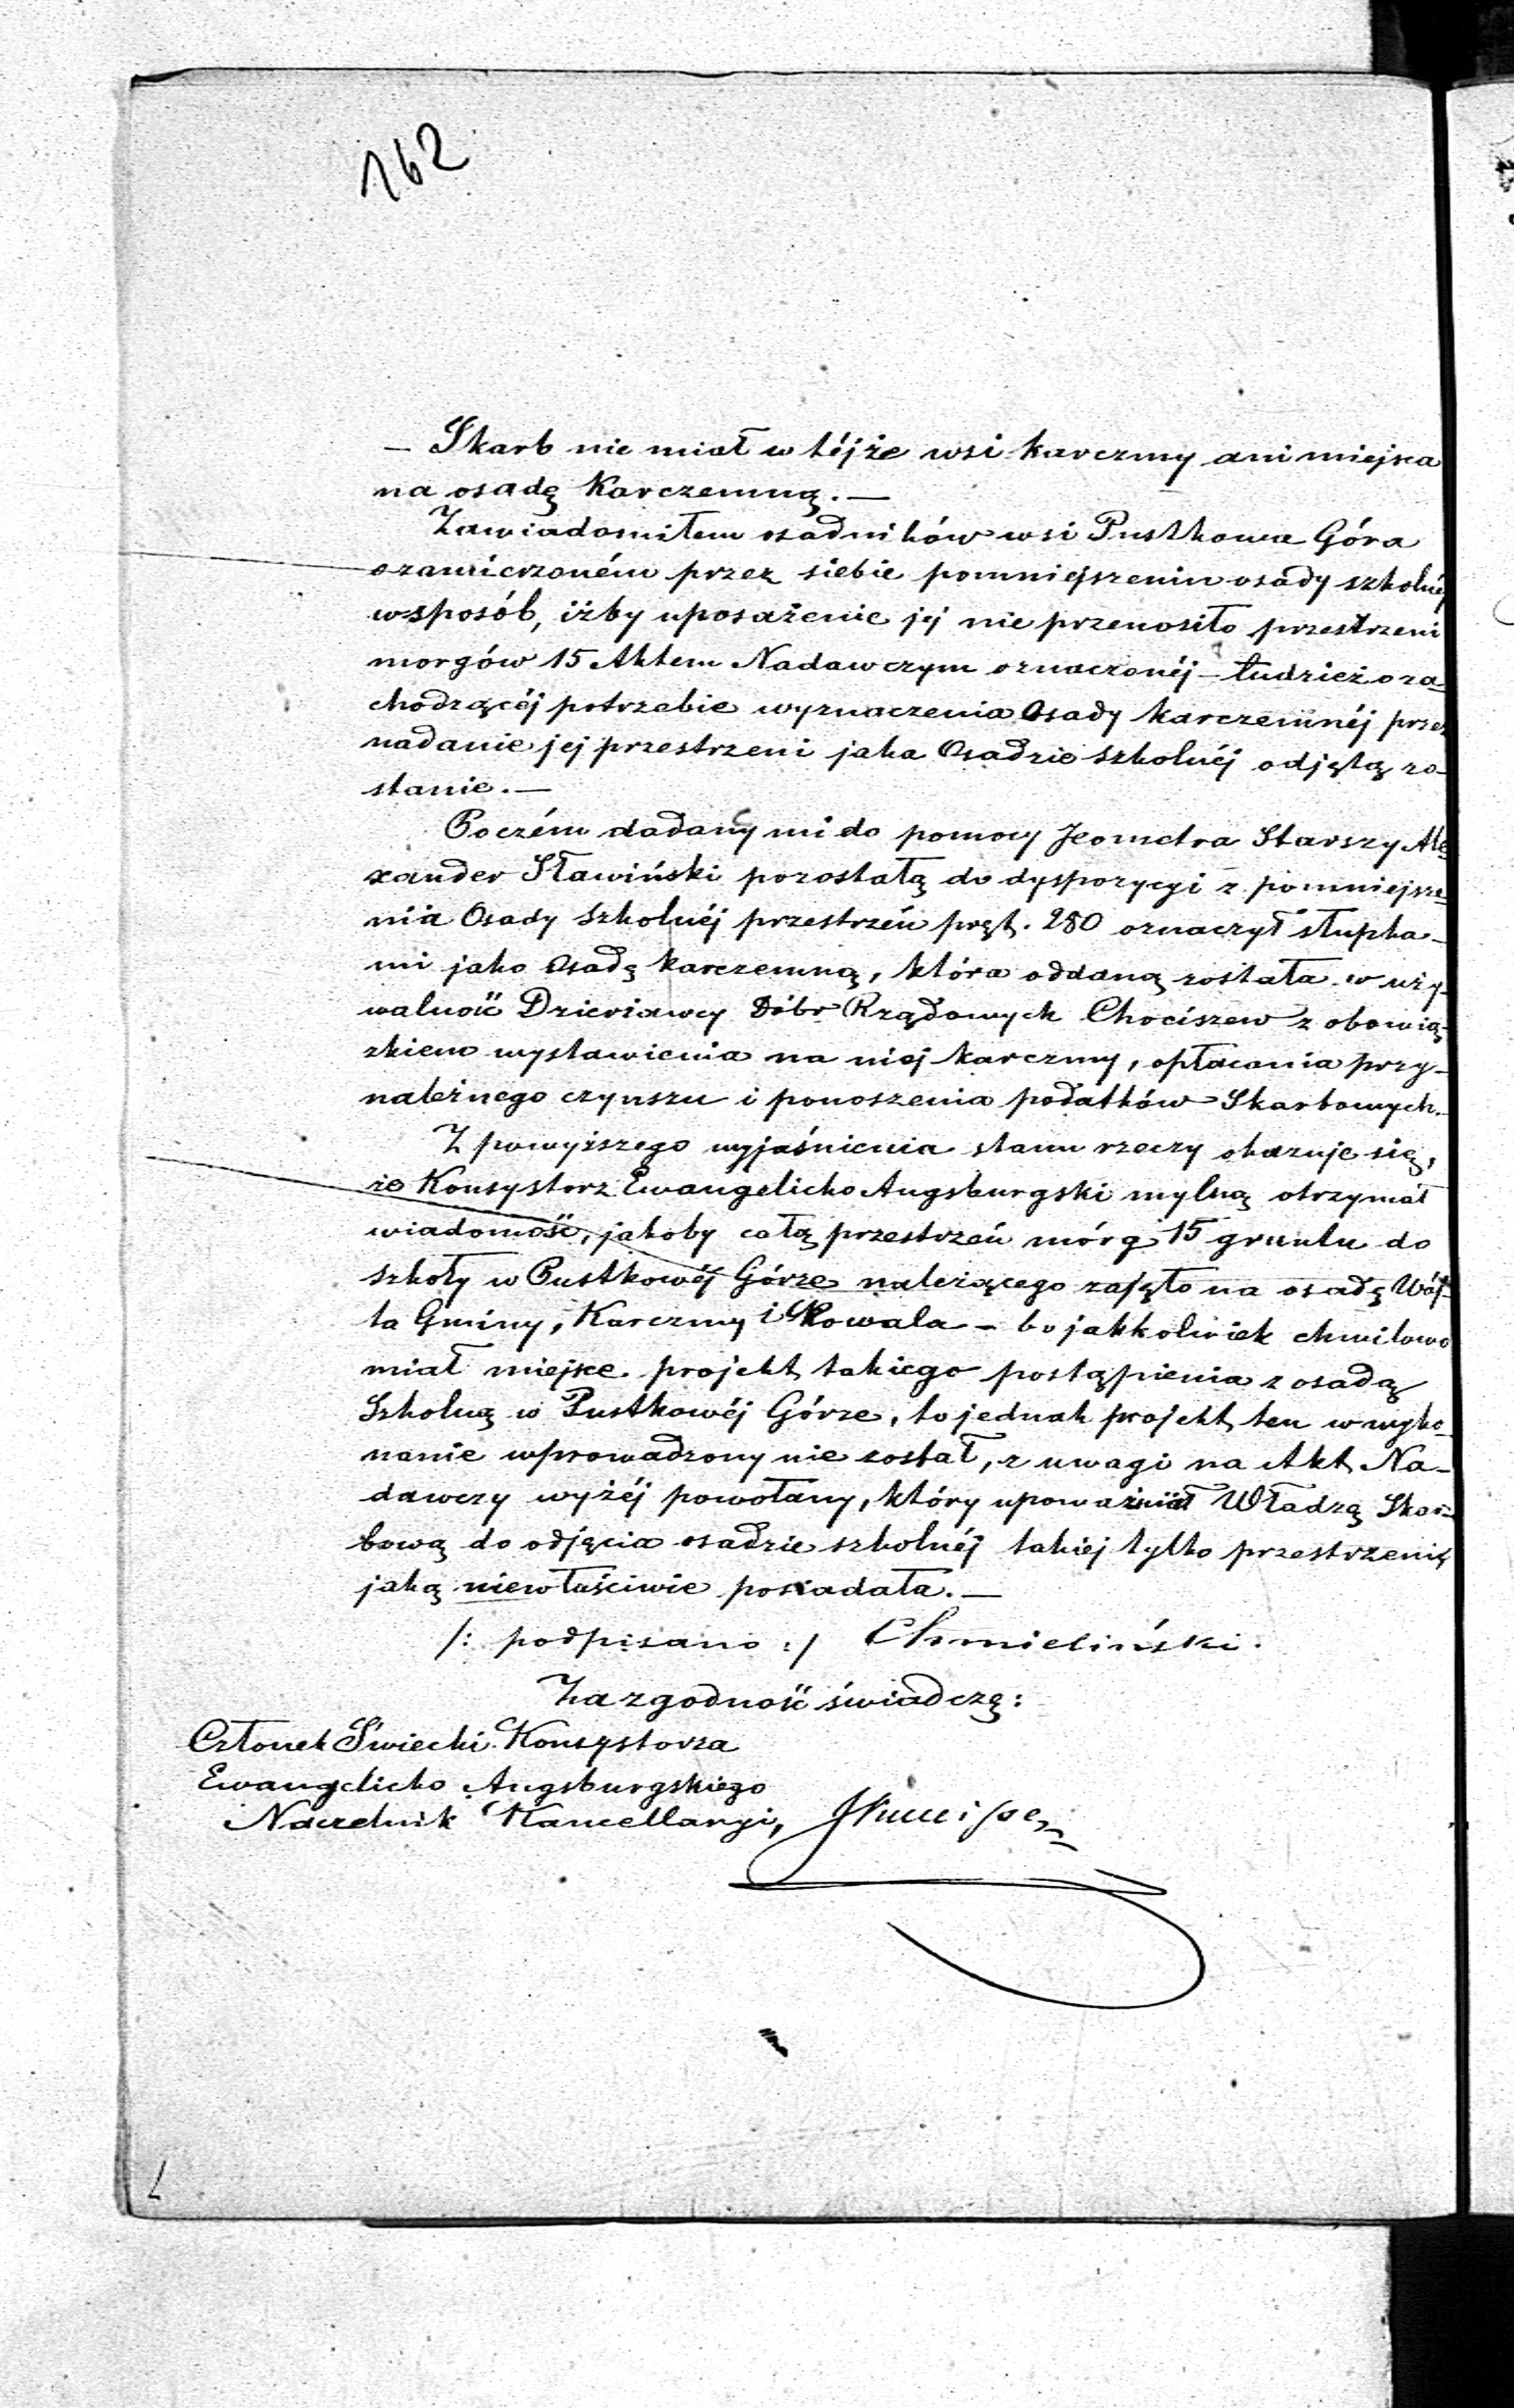 162
– Skarb nie miał w téjże wsi karczmy ani miejsca
na osadę Karczemną. —
Zawiadomiłem osadników wsi Pustkowa Góra
o zamierzoném przez siebie pomniejszeniu osady szkolnéj
w sposób, iżby uposażenie jéj nie przenosiło przestrzeni
morgów 15 Aktem Nadawczym oznaczonéj – tudzież o za-
chodzącéj potrzebie wyznaczenia Osady karczemnéj przez
nadanie jéj przestrzeni jaka Osadzie szkolnéj odjętą zo-
stanie. —
Poczém dodany mi do pomocy Jeometra Starszy Ale-
xander Sławiński pozostałą do dyspozycyi z pomniejsze-
nia Osady szkolnéj przestrzeń pręt. 280 oznaczył słupka-
mi jako Osadę karczemną, która oddaną została w uży-
walność Dzierżawcy Dóbr Rządowych Chociszew z obowią-
zkiem wystawienia na niej karczmy, opłacania przy-
należnego czynszu i ponoszenia podatków Skarbowych. –
Z powyższego wyjaśnienia stanu rzeczy okazuje się,
że Konsystorz Ewangelicko Augsburgski mylną otrzymał
wiadomość, jakoby całą przestrzeń mórg 15 gruntu do
szkoły w Pustkowéj Górze należącego zajęto na osadę Wój-
ta Gminy, Karczmy i Kowala – bo jakkolwiek chwilowo
miał miejsce projekt takiego postąpienia z osadą
Szkolną w Pustkowéj Górze, to jednak projekt ten w wyko-
nanie wprowadzony nie został, z uwagi na Akt Na-
dawczy wyżéj powołany, który upoważniał Władzą Skar-
bową do odjęcia osadzie szkolnéj takiéj tylko przestrzeni
jaką niewłaściwie posiadała. —
/: podpisano :/ Chmieliński.
Za zgodność świadczę:
Członek Świecki Konsystorza
Ewangelicko Augsburgskiego
Naczelnik Kancellaryi,